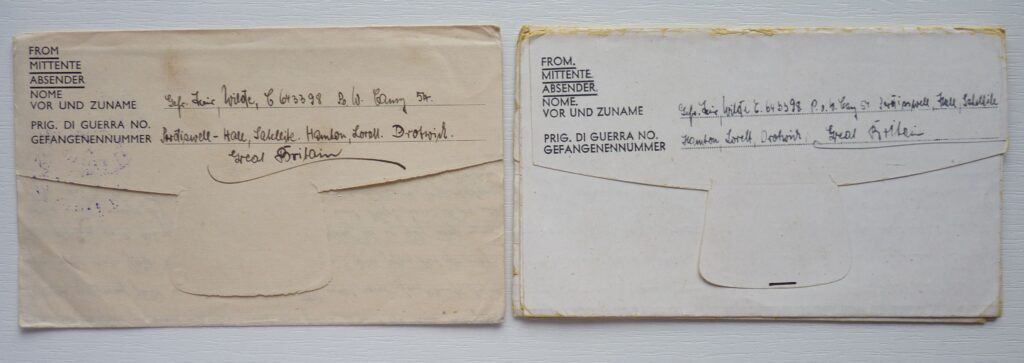 FROM
MITTENTE
ABSENDER
NOME
VOR UND ZUNAME Wilste, C 643398 P. W. Camp 57.
PRIG. DI GUERRA NO.
GEFANGENENNUMMER Hall, Hambon, Lovett, Drotwich.
Great Britain
FROM.
MITTENTE
ABSENDER
NOME.
VOR UND ZUNAME Wilste C. 643398 P. o. W. Camp 57 Hall,
PRIG. DI GUERRA NO.
GEFANGENENNUMMER Hambon, Lovett, Drotwich. Great Britain